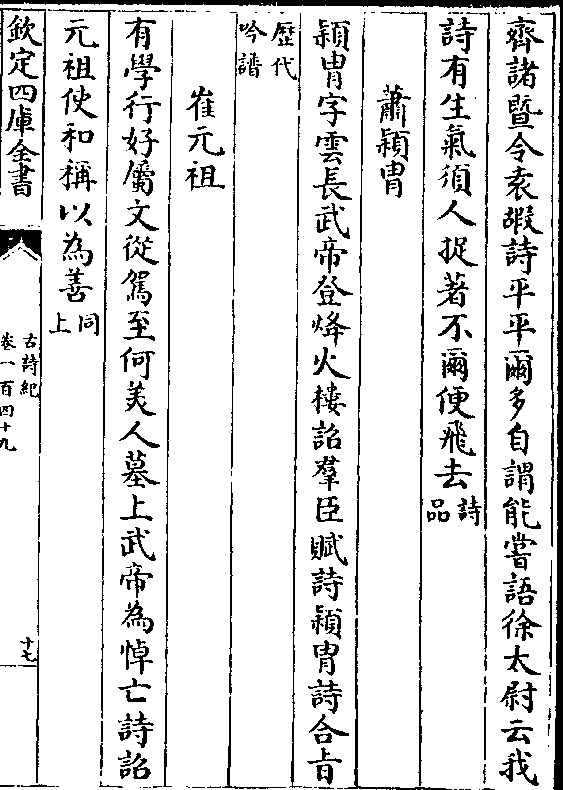 齊諸暨令袁嘏詩平平爾多自謂能嘗語徐太尉云我
詩有生氣須人捉著不爾便飛去詩品
蕭穎胄
穎胄字雲長武帝登烽火樓詔羣臣賦詩穎胄詩合旨
歷代吟譜
崔元祖
有學行好屬文從駕至何美人墓上武帝為悼亡詩詔
元祖使和稱以為善同上
欽定四庫全書
古詩紀
卷一百四十九
十七